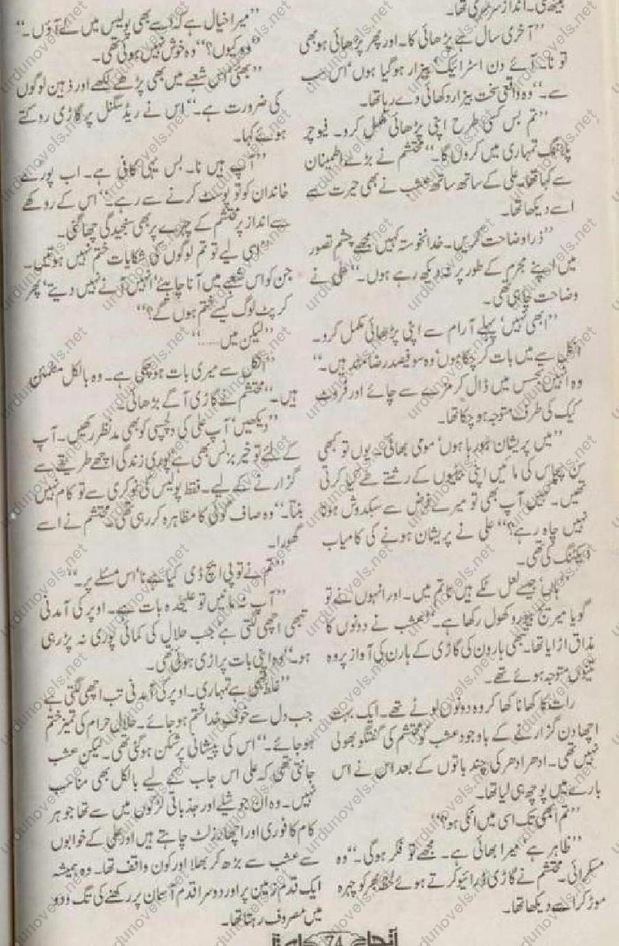 بیٹھی۔ انداز سرسری تھا۔
"آخری سال ہے پڑھائی کا۔ اور پھر پڑھائی ہو بھی
تو نا۔ آئے دن اسٹرائیک بیزار ہو گیا ہوں اس سب
سے۔" وہ واقعی سخت بیزار دکھائی دے رہا تھا۔
"تم بس کسی طرح اپنی پڑھائی مکمل کرو۔ فیوچر
پلاننگ تمہاری میں کروں گا۔" محتشم نے بڑے اطمینان
سے کہا تھا۔ علی کے ساتھ ساتھ عشب نے بھی حیرت سے
اسے دیکھا تھا۔
"ذرا وضاحت کریں۔ خدانخواستہ کہیں مجھے چشم تصور
میں اپنے مجرم کے طور پر تو نہیں دیکھ رہے ہوں۔" علی نے
وضاحت چاہی تھی۔
"ابھی نہیں پہلے آرام سے اپنی پڑھائی مکمل کرو۔
انکل سے میں بات کر چکا ہوں وہ سو فیصد رضامند ہیں۔"
وہ انہیں تجسس میں ڈال کر مزے سے چائے اور فروٹ
کیک کی طرف متوجہ ہو چکا تھا۔
"میں پریشان ہو رہا ہوں موی بھائی۔ یوں تو کبھی
سن پچاس کی مائیں اپنی بیٹیوں کے رشتے طے کیا کرتی
تھیں۔ کہیں آپ بھی تو میرے فرض سے سبکدوش ہونا
نہیں چاہ رہے؟" علی نے پریشان ہونے کی کامیاب
ایکٹنگ کی تھی۔
"ہاں جیسے لعل ٹکے ہیں نا تم میں۔ اور انہوں نے تو
گویا میرج بیورو کھول رکھا ہے۔" عشب نے دونوں کا
مذاق اڑایا تھا۔ تبھی ہارون کی گاڑی کے ہارن کی آواز پر وہ
تینوں متوجہ ہوئے تھے۔
رات کا کھانا کھا کر وہ دونوں لوٹے تھے۔ ایک بہت
اچھا دن گزارنے کے باوجود عشب کو محتشم کی گفتگو بھولی
نہیں تھی۔ ادھر ادھر کی چند باتوں کے بعد اس نے اس
بارے میں پوچھ ہی لیا تھا۔
"تم ابھی تک اسی میں اٹکی ہو؟"
"ظاہر ہے میرا بھائی ہے۔ مجھے تو فکر ہو گی۔" وہ
مسکرائی۔ محتشم نے گاڑی ڈرائیو کرتے ہوئے لحظہ بھر کو چہرہ
موڑ کر اسے دیکھا تھا۔
"میرا خیال ہے کہ اسے بھی پولیس میں لے آؤں۔"
"وہ کیوں؟" وہ خوش نہیں ہوئی تھی۔
"بھئی اس شعبے میں بھی پڑھے لکھے اور ذہین لوگوں
کی ضرورت ہے۔" اس نے ریڈ سگنل پر گاڑی روکتے
ہوئے کہا۔
"آپ ہیں نا۔ بس یہی کافی ہے۔ اب پورے
خاندان کو تو پوسٹ کرنے سے رہے۔" اس کے روکھے
سے انداز پر محتشم کے چہرے پر بھی سنجیدگی چھا گئی۔
"اسی لیے تو تم لوگوں کی شکایات ختم نہیں ہوتیں۔
جن کو اس شعبے میں آنا چاہئے انہیں آنے نہیں دیتے پھر
کرپٹ لوگ کیسے ختم ہوں گے؟"
"لیکن میں......"
"انکل سے میری بات ہو چکی ہے۔ وہ بالکل مطمئن
ہیں۔" محتشم نے گاڑی آگے بڑھائی۔
"دیکھیں آپ علی کی دلچسپی کو بھی مدنظر رکھیں۔ آپ
کے لئے تو خیر بزنس بھی ہے پوری زندگی اچھے طریقے سے
گزارنے کے لیے۔ فقط پولیس کی نوکری سے تو کام نہیں
بنتا۔" وہ صاف گوئی کا مظاہرہ کر رہی تھی۔ محتشم نے اسے
گھورا۔
"تم نے تو پی ایچ ڈی کیا ہے نا اس مسئلے پر۔"
"آپ نہ مانیں تو علیحدہ بات ہے۔ اوپر کی آمدنی
تبھی اچھی لگتی ہے جب حلال کی کمائی پوری نہ پڑ رہی
ہو۔" وہ اپنی بات پر اڑی ہوئی تھی۔
"غلط فہمی ہے تمہاری۔ اوپر کی آمدنی تب اچھی لگتی ہے
جب دل سے خوف خدا ختم ہو جائے۔ حلال حرام کی تمیز ختم
ہو جائے۔" اس کی پیشانی پر شکن ہو گئی تھی۔ لیکن عشب
جانتی تھی کہ علی اس جاب کے لیے بالکل بھی مناسب
نہیں۔ وہ ان جوشیلے اور جذباتی لڑکوں میں سے تھا جو ہر
کام کا فوری اور اچھا رزلٹ چاہتے ہیں اور علی کے خوابوں
سے عشب سے بڑھ کر بھلا اور کون واقف تھا۔ وہ ہمیشہ
ایک قدم زمین پر اور دوسرا قدم آسمان پر رکھنے کی تگ و دو
میں مصروف رہتا تھا۔
74
urdunovels.net